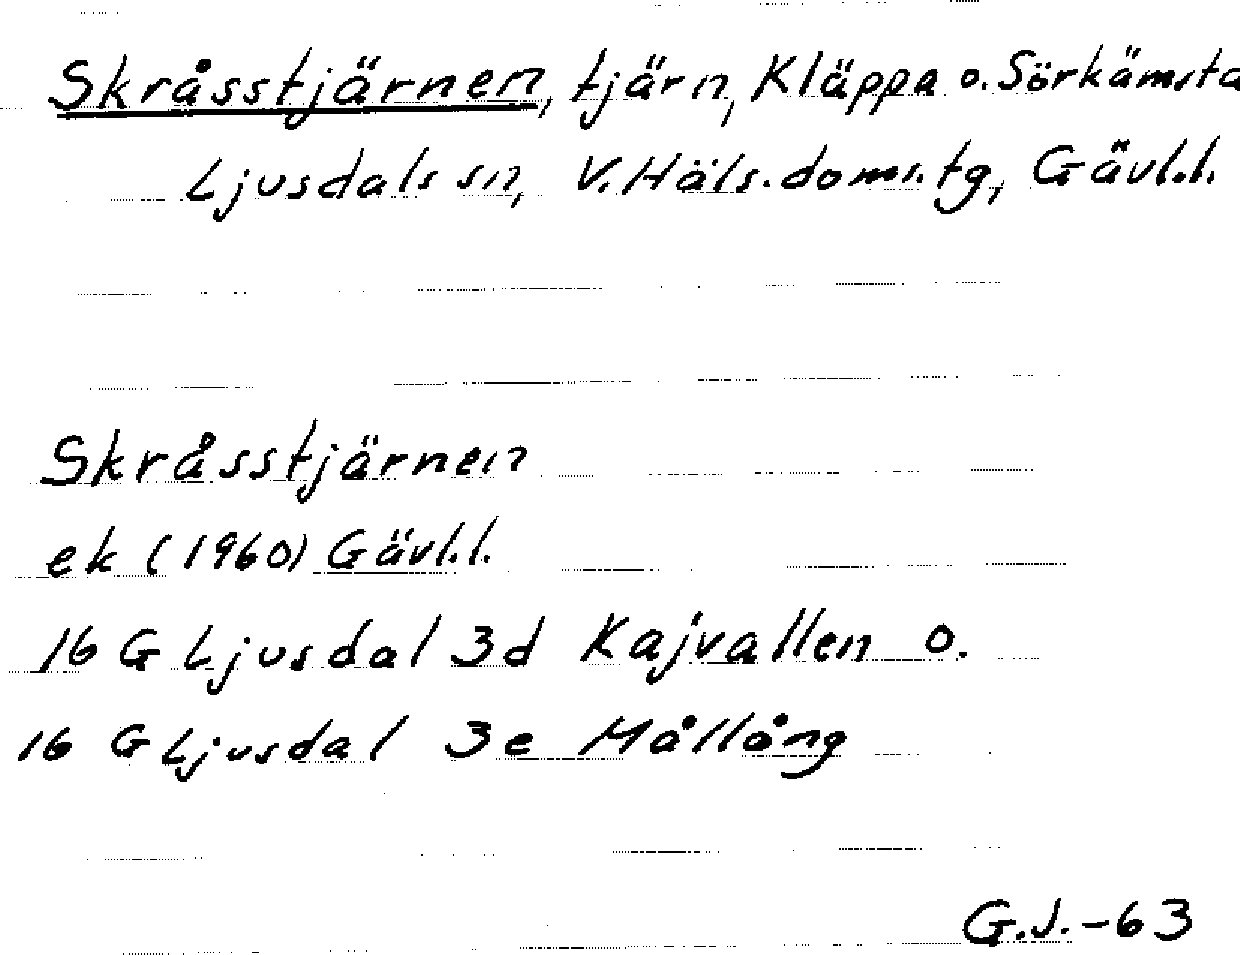 Skråsstjärnen, tjärn, Kläppa o. Sörkämsta
Ljusdals sn, V. Häls. doms. tg, Gävl.l.
Skråsstjärnen
ek (1960) Gävl.l.
16 G Ljusdal 3d Kajvallen o.
16 G Ljusdal 3e Mållång
G.J.-63